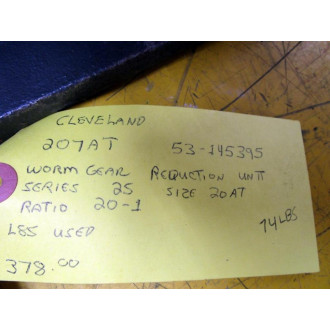 CLEVELAND
207AT 53-145395
WORM GEAR REDUCTION UNIT
SERIES 25 SIZE 20AT
RATIO 20-1
74LBS
LBS USED
378.00